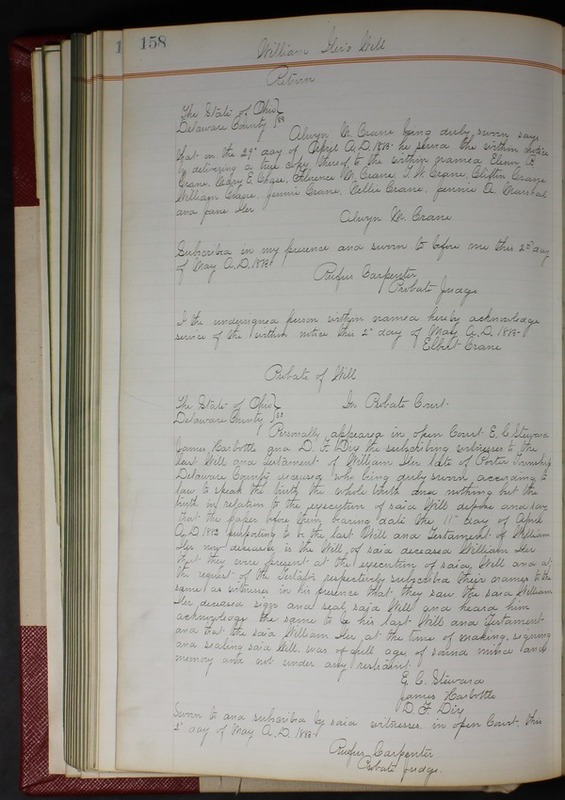 158
William Iler's Will
Return
The State of Ohio }
Delaware County } ss
Alwyn M. Crane being duly sworn says
that on the 29" day of April A.D. 1883 he served the within notice
by delivering a true copy thereof to the within named
Crane, Mary E. Chase, Florence M. Crane, T. W. Crane, Clifton Crane
William Crane, Jennie Crane, Nellie Crane, Jennie A. Marshal
and Jane Iler
Alwyn M. Crane
Subscribed in my presence and sworn to before me this 2nd day
of May A.D. 1883
Rufus Carpenter
Probate Judge
I the undersigned person within named hereby acknowledge
service of the within notice this 2" day of May A.D. 1883
Elbert Crane
Probate of Will
The State of Ohio }
Delaware County } ss
In Probate Court
Personally appeared in open Court E. C. Steward
James Harbottle and D. F. Dix the subscribing witnesses to the
last Will and Testament of William Iler late of Porter Township
Delaware County deceased who being duly sworn according to
law to speak the truth the whole truth and nothing but the
truth in relation to the execution of said Will depose and say
that the paper before them bearing date the 11" day of April
A.D. 1882 purporting to be the last Will and Testament of William
Iler now deceased is the Will of said deceased William Iler
that they were present at the execution of said Will and at
the request of the Testator respectively subscribed their names to the
same as witnesses in his presence that they saw the said William
Iler deceased sign and seal said Will and heard him
acknowledge the same to be his last Will and Testament
and that the said William Iler, at the time of making, signing
and sealing said Will was of full age of sound mind and
memory and not under any restraint.
E. C. Steward
James Harbottle
D. F. Dix
Sworn to and subscribed by said witnesses in open Court this
day of May A.D. 1883
Rufus Carpenter
Probate Judge.